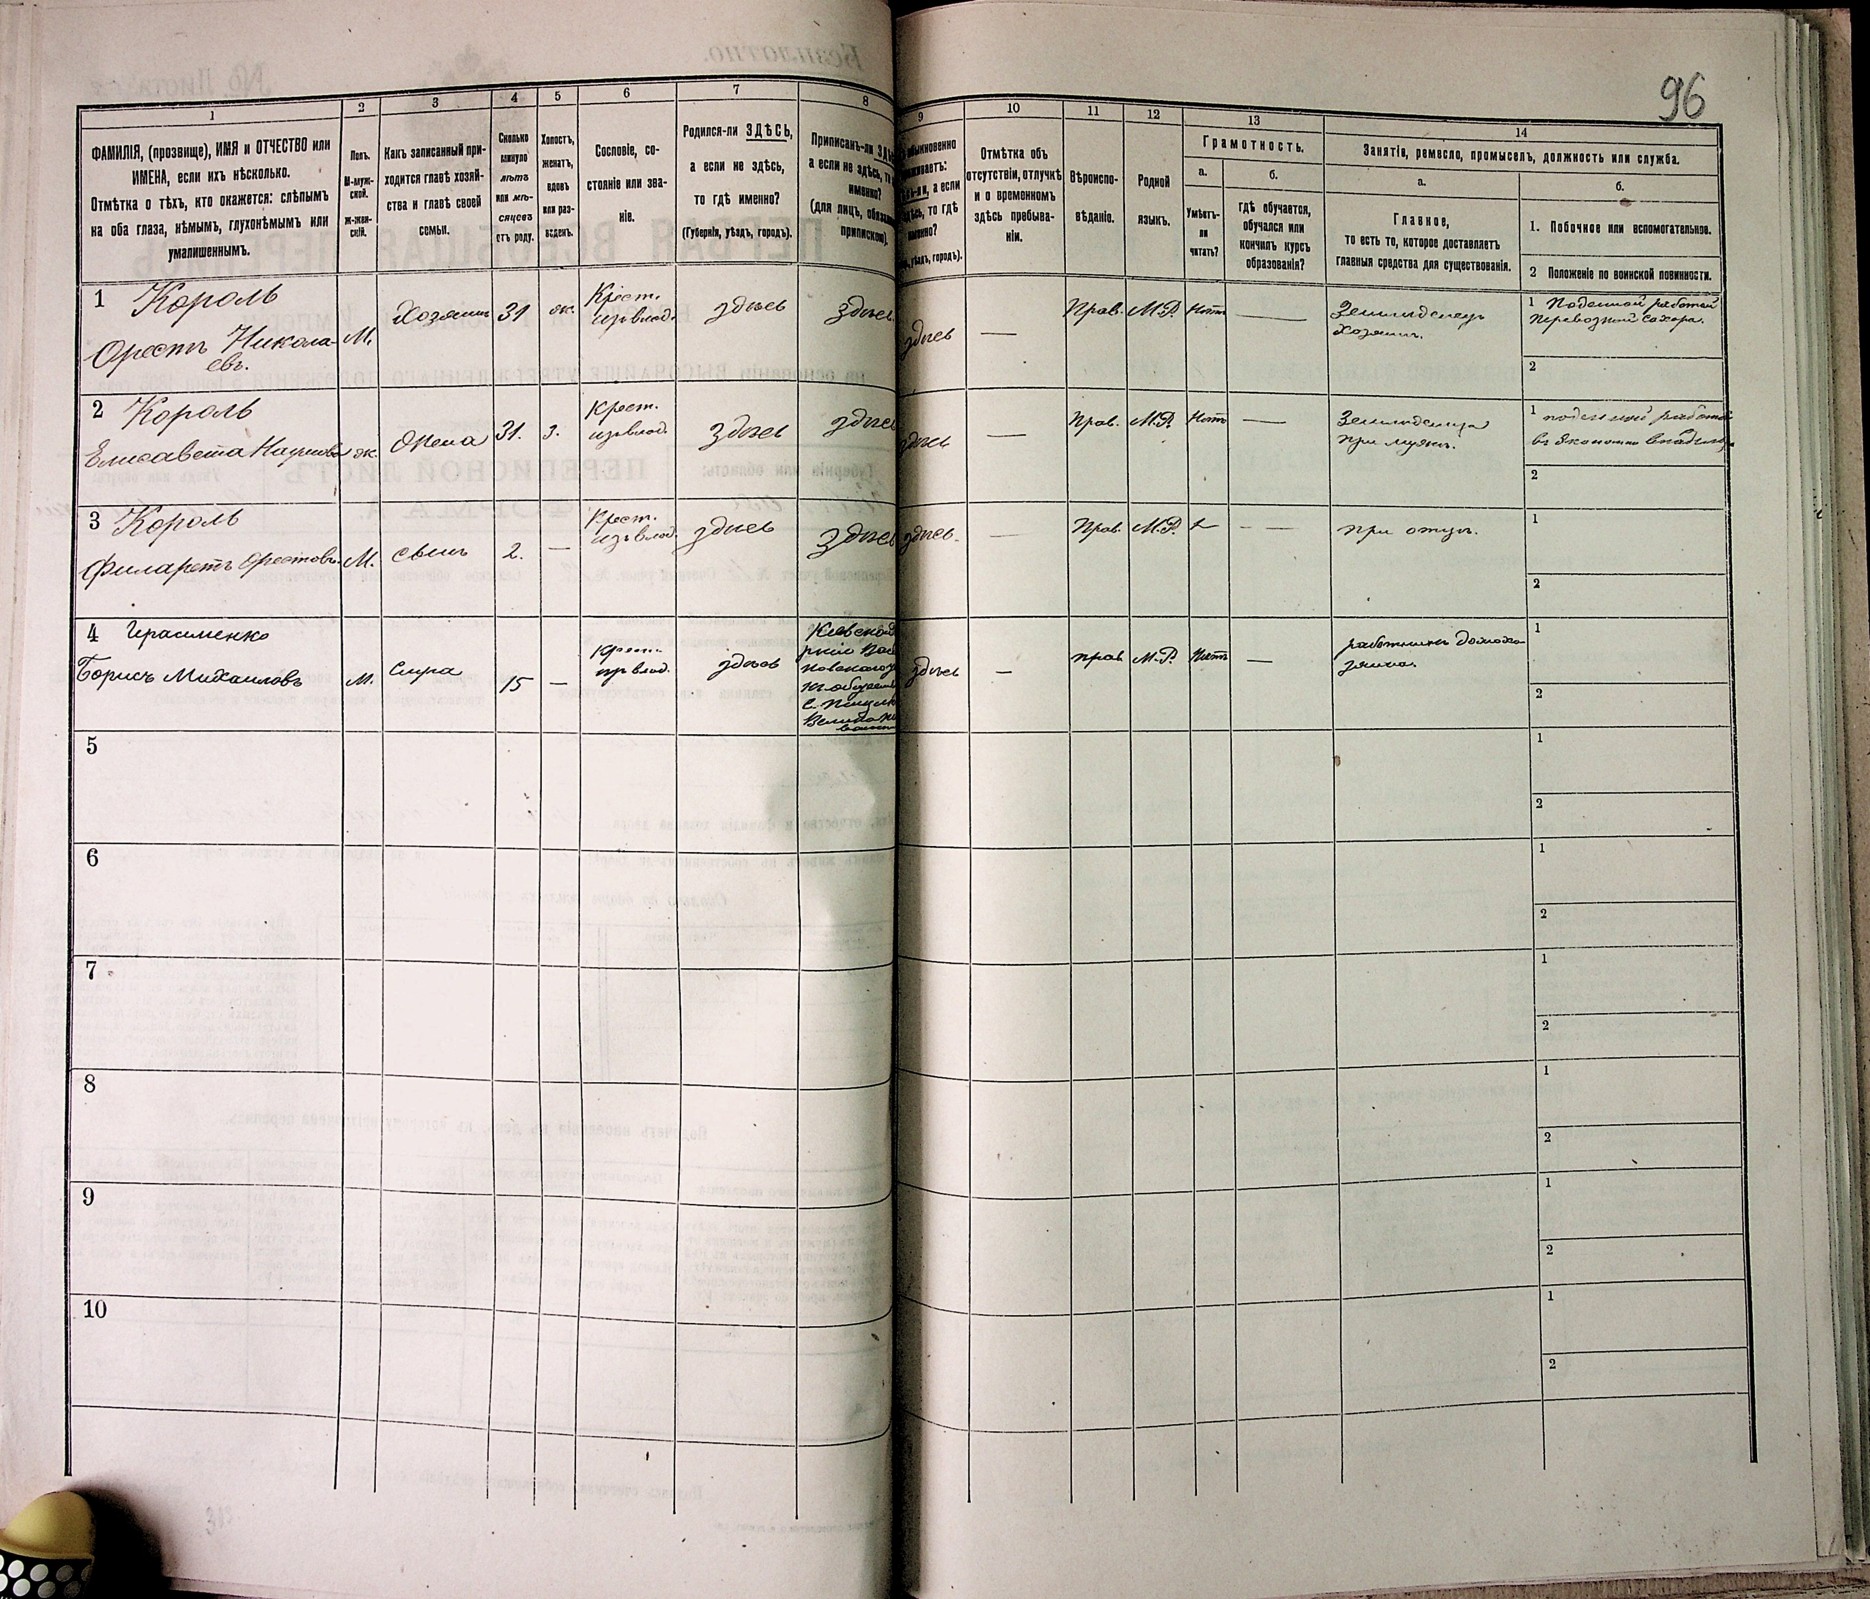 96
1
2
3
4
5
6
7
8
9
10
11
12
13
14
ФАМИЛІЯ, (прозвище), ИМЯ и ОТЧЕСТВО или
ИМЕНА, если ихъ нѣсколько.
Отмѣтка о тѣхъ, кто окажется: слѣпымъ
на оба глаза, нѣмымъ, глухонѣмымъ или
умалишеннымъ.
Полъ.
М-муж-
ской.
ж-жен-
скій.
Какъ записанный при-
ходится главѣ хозяй-
ства и главѣ своей
семьи.
Сколько
минуло
лѣтъ
или мѣ-
сяцевъ
отъ роду.
Холостъ,
женатъ,
вдовъ
или раз-
веденъ.
Сословіе, со-
стояніе или зва-
ніе.
Родился-ли ЗДѢСЬ,
а если не здѣсь,
то гдѣ именно?
(Губернія, уѣздъ, городъ).
Приписанъ-ли
а если не здѣсь, то
именно?
(для лицъ,
припискою).
обыкновенно
а если
то гдѣ
уѣздъ, городъ).
Отмѣтка объ
отсутствіи, отлучкѣ
и о временномъ
здѣсь пребыва-
ніи.
Вѣроиспо-
вѣданіе.
Родной
языкъ.
Грамотность.
а.
Умѣетъ-
ли
читать?
б.
гдѣ обучается,
обучался или
кончилъ курсъ
образованія?
Занятіе, ремесло, промыселъ, должность или служба.
а.
Главное,
то есть то, которое доставляетъ
главныя средства для существованія.
б.
1. Побочное или вспомогательное.
2 Положеніе по воинской повинности.
1 Король
Орестъ Никола-
евъ.
М.
Хозяинъ
31
ж.
Крест.
изъ влад.
здѣсь
здѣсь
здѣсь
—
Прав.
М.Р.
Нѣтъ
—
Земледѣлецъ
хозяинъ.
1 Поденной работой
перевозкой сахара.
2
2 Король
Елисавета
ж.
31.
з.
Крест.
изъ влад.
здѣсь
здѣсь
здѣсь
—
Прав.
М.Р.
Нѣтъ
—
Земледѣлица
при мужѣ.
1 поденной
въ экономіи
2
3 Король
Филаретъ Орестовъ.
М.
сынъ
2.
—
Крест.
изъ влад.
здѣсь
здѣсь
здѣсь.
—
Прав.
М.Р.
— —
при отцѣ.
1
2
4 Герасименко
Борисъ Михаиловъ
М.
слуга
15
—
Крест.
влад.
здѣсь
Кіевской
здѣсь
—
прав
М.Р.
Нѣтъ
—
работникъ домохо-
зяина.
1
2
5
1
2
6
1
2
7
1
2
8
1
2
9
1
2
10
1
2